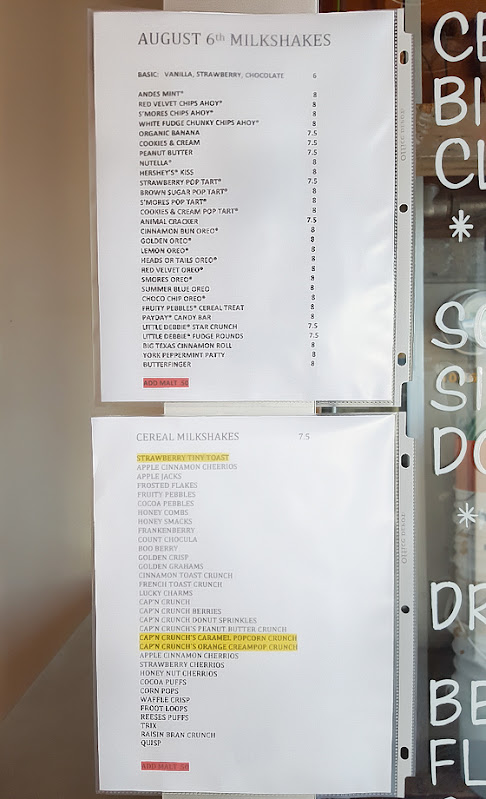 AUGUST 6th MILKSHAKES
BASIC: VANILLA, STRAWBERRY, CHOCOLATE 6
ANDES MINT* 8
RED VELVET CHIPS AHOY* 8
S'MORES CHIPS AHOY* 8
WHITE FUDGE CHUNKY CHIPS AHOY* 8
ORGANIC BANANA 7.5
COOKIES & CREAM 7.5
PEANUT BUTTER 7.5
NUTELLA* 8
HERSHEY'S* KISS 8
STRAWBERRY POP TART* 7.5
BROWN SUGAR POP TART* 8
S'MORES POP TART* 8
COOKIES & CREAM POP TART* 8
ANIMAL CRACKER 7.5
CINNAMON BUN OREO* 8
GOLDEN OREO* 8
LEMON OREO* 8
HEADS OR TAILS OREO* 8
RED VELVET OREO* 8
SMORES OREO* 8
SUMMER BLUE OREO 8
CHOCO CHIP OREO* 8
FRUITY PEBBLES* CEREAL TREAT 8
PAYDAY* CANDY BAR 8
LITTLE DEBBIE* STAR CRUNCH 7.5
LITTLE DEBBIE* FUDGE ROUNDS 7.5
BIG TEXAS CINNAMON ROLL 8
YORK PEPPERMINT PATTY 8
BUTTERFINGER 8
ADD MALT .50
CEREAL MILKSHAKES 7.5
STRAWBERRY TINY TOAST
APPLE CINNAMON CHEERIOS
APPLE JACKS
FROSTED FLAKES
FRUITY PEBBLES
COCOA PEBBLES
HONEY COMBS
HONEY SMACKS
FRANKENBERRY
COUNT CHOCULA
BOO BERRY
GOLDEN CRISP
GOLDEN GRAHAMS
CINNAMON TOAST CRUNCH
FRENCH TOAST CRUNCH
LUCKY CHARMS
CAP'N CRUNCH
CAP'N CRUNCH BERRIES
CAP'N CRUNCH DONUT SPRINKLES
CAP'N CRUNCH'S PEANUT BUTTER CRUNCH
CAP'N CRUNCH'S CARAMEL POPCORN CRUNCH
CAP'N CRUNCH'S ORANGE CREAMPOP CRUNCH
APPLE CINNAMON CHERRIOS
STRAWBERRY CHERRIOS
HONEY NUT CHERRIOS
COCOA PUFFS
CORN POPS
WAFFLE CRISP
FROOT LOOPS
REESES PUFFS
TRIX
RAISIN BRAN CRUNCH
QUISP
ADD MALT .50
CE
BI
CL
*
SO
SI
DO
*
DR
BE
FL